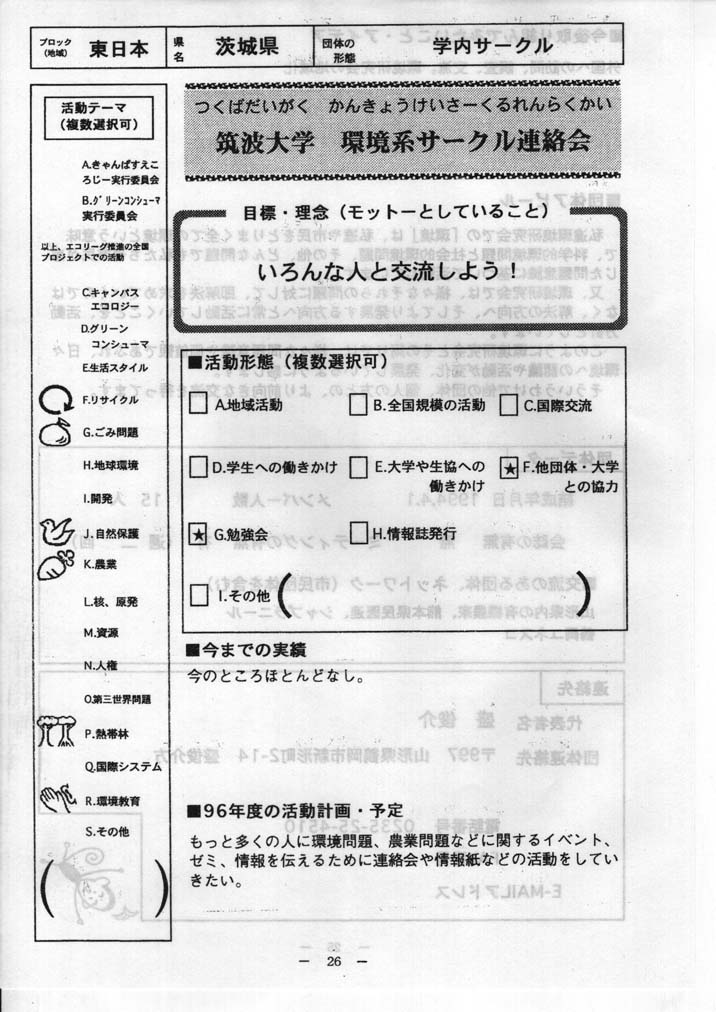 ブロック
(地域)
東日本
県名
茨城県
団体の
形態
学内サークル
活動テーマ
(複数選択可)
A.きゃんぱすえこ
ろじー実行委員会
B.グリーンコンシューマ
実行委員会
以上、エコリーグ推進の全国
プロジェクトでの活動
C.キャンパス
エコロジー
D.グリーン
コンシューマ
E.生活スタイル
F.リサイクル
G.ごみ問題
H.地球環境
I.開発
J.自然保護
K.農業
L.核、原発
M.資源
N.人権
O.第三世界問題
P.熱帯林
Q.国際システム
R.環境教育
S.その他
( )
つくばだいがく かんきょうけいさーくるれんらくかい
筑波大学 環境系サークル連絡会
目標・理念(モットーとしていること)
いろんな人と交流しよう!
■活動形態(複数選択可)
□ A.地域活動 □ B.全国規模の活動 □ C.国際交流
□ D.学生への働きかけ □ E.大学や生協への
働きかけ
★ F.他団体・大学
との協力
★ G.勉強会 □ H.情報誌発行
□ I.その他 ( )
■今までの実績
今のところほとんどなし。
■96年度の活動計画・予定
もっと多くの人に環境問題、農業問題などに関するイベント、
ゼミ、情報を伝えるために連絡会や情報紙などの活動をしてい
きたい。
— 26 —